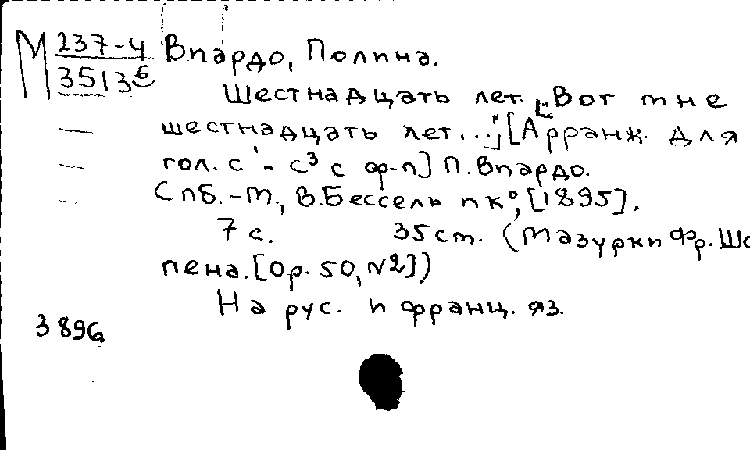 М 237-4 Виардо, Полина.
3513б
Шестнадцать лет. „Вот мне
шестнадцать лет...“; [Арранж. для
гол. с¹ - с³ с ф-п] П. Виардо.
Спб.-М., В. Бессель и к°, [1895].
7 с. 35 см. (Мазурки Фр. Шо
пена. [Op. 50, №2])
На рус. и франц. яз.
3 896